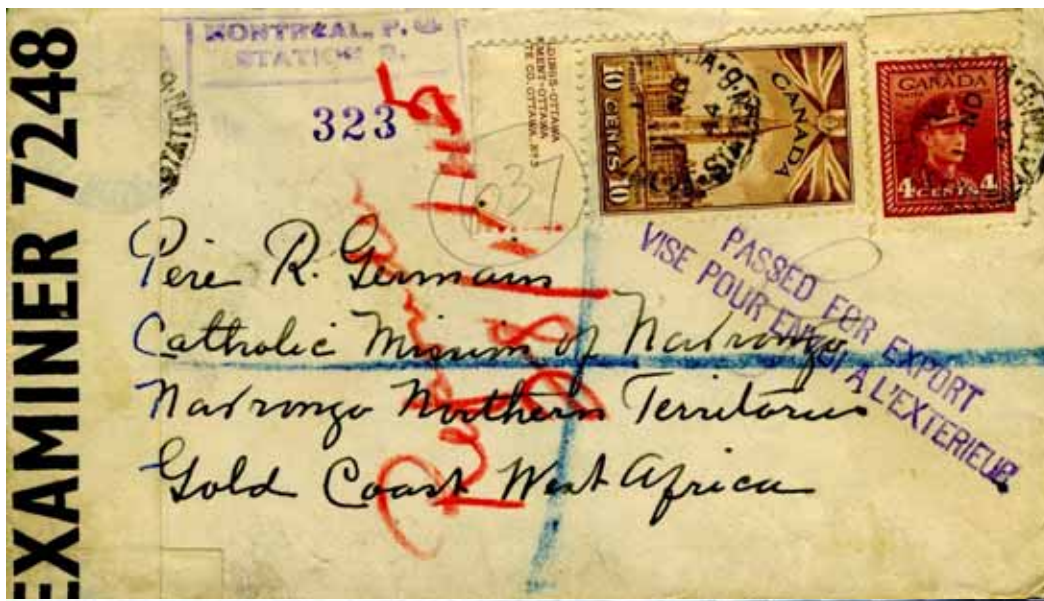 EXAMINER 7248
MONTREAL, P. Q
STATION
323
LDINGS-OTTAWA
MENT-OTTAWA
TE CO. OTTAWA. Nº3
CANADA
10 CENTS 10
CANADA
4 CENTS 4
PASSED FOR EXPORT
VISE POUR ENVOI A L'EXTERIEUR
Père R. Germain
Catholic Mission of Navrongo
Navrongo Northern Territories
Gold Coast West Africa